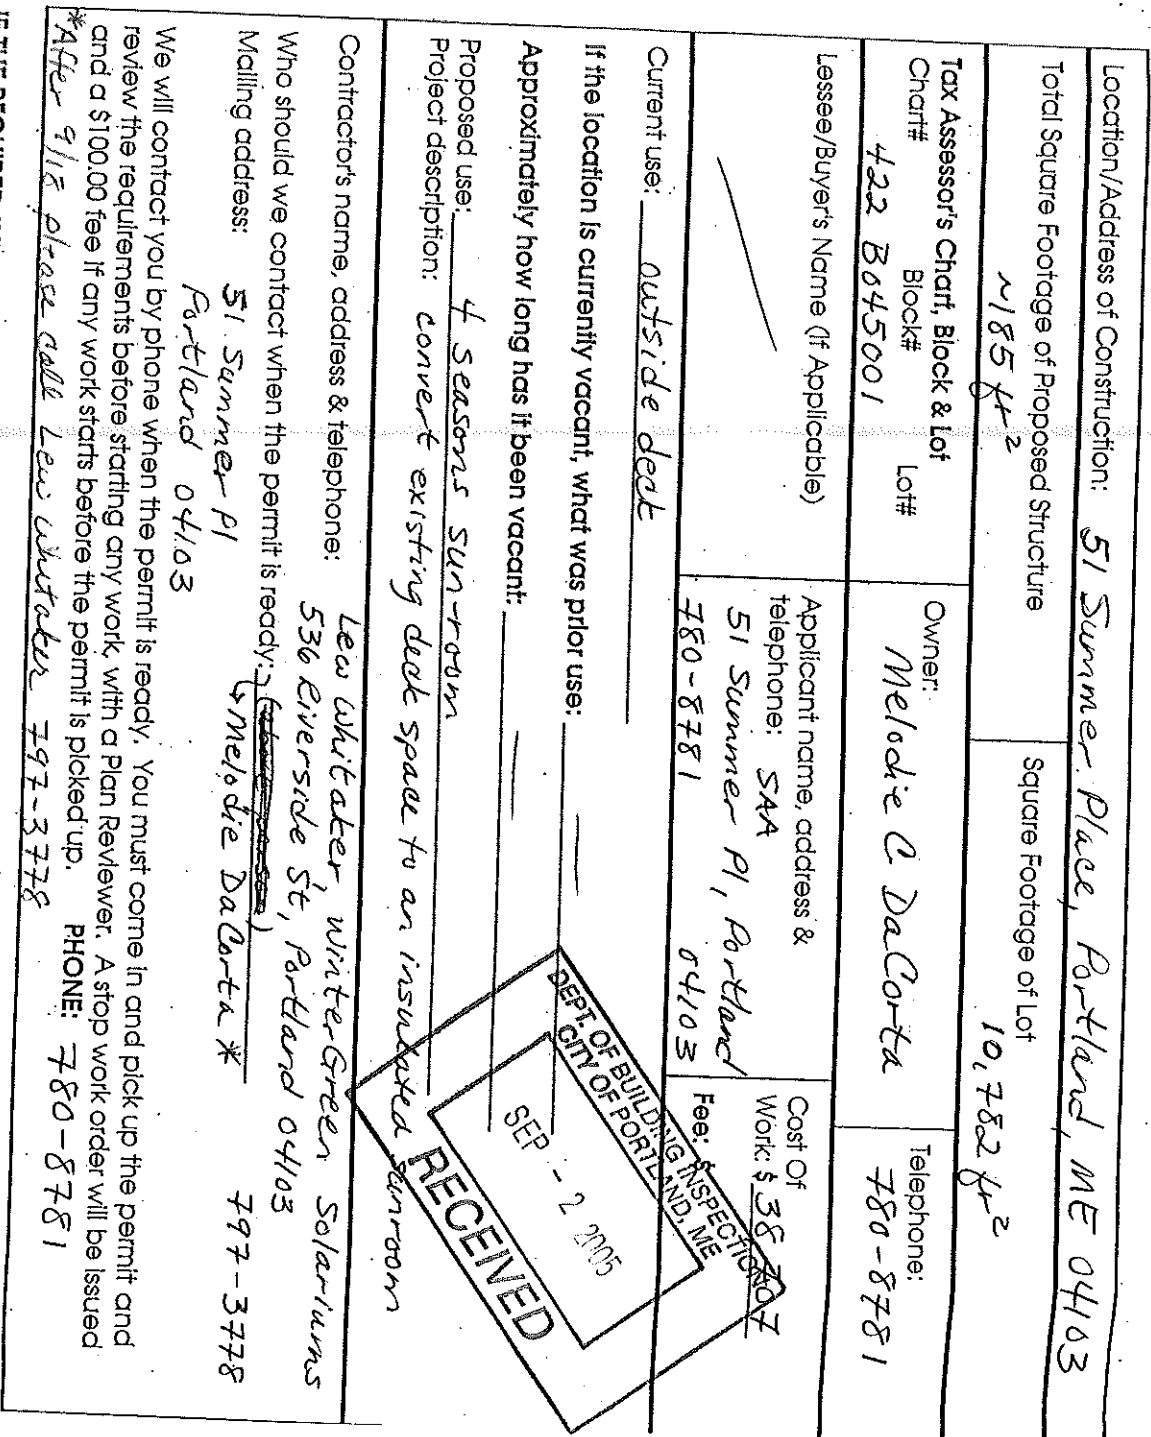 Location/Address of Construction: 51 Summer Place, Portland, ME 04103
Total Square Footage of Proposed Structure
~185 ft²
Square Footage of Lot
10,782 ft²
Tax Assessor's Chart, Block & Lot
Chart# Block# Lot#
422 B045001
Owner:
Melodie C DaCorta
Telephone:
780-8781
Lessee/Buyer's Name (If Applicable)
Applicant name, address &
telephone: SAA
51 Summer Pl, Portland
780-8781 04103
Cost Of
Work: $ 38
Fee: $
Current use: outside deck
If the location is currently vacant, what was prior use: —
Approximately how long has it been vacant: —
Proposed use: 4 seasons sun-room
Project description: convert existing deck space to an insulated sunroom
DEPT. OF BUILDING INSPECTION
CITY OF PORTLAND, ME
SEP - 2 2005
RECEIVED
Contractor's name, address & telephone: Lew Whitaker, WinterGreen Solariums
536 Riverside St, Portland 04103
797-3778
Who should we contact when the permit is ready:
Melodie DaCorta *
Mailing address: 51 Summer Pl
Portland 04103
We will contact you by phone when the permit is ready. You must come in and pick up the permit and
review the requirements before starting any work, with a Plan Reviewer. A stop work order will be issued
and a $100.00 fee if any work starts before the permit is picked up. PHONE: 780-8781
*After 9/18 please call Lew Whitaker 797-3778